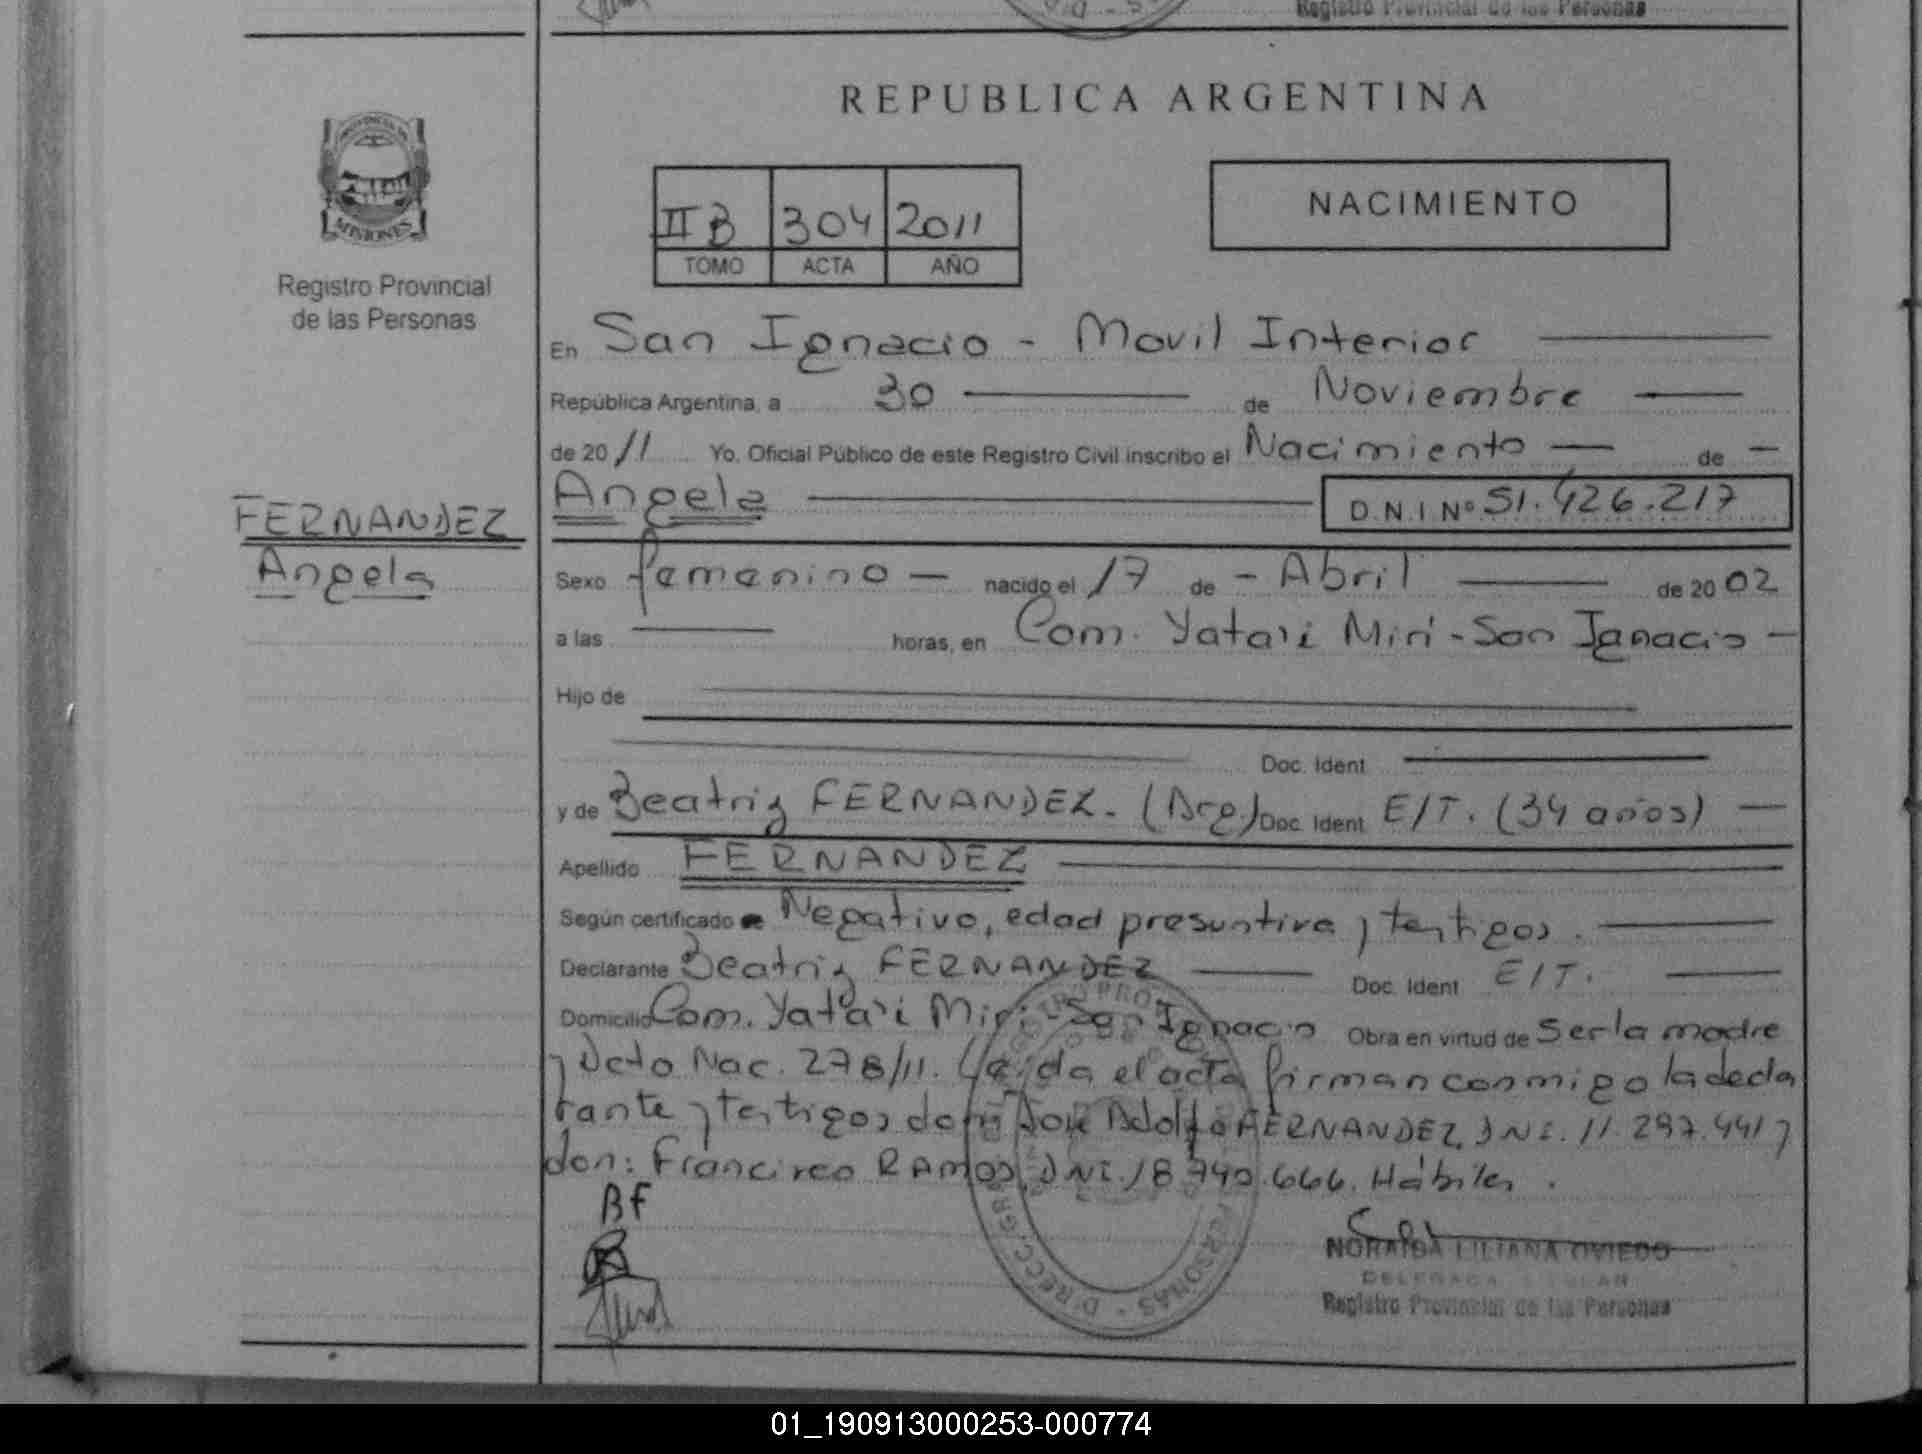 Registro Provincial de las Personas
REPUBLICA ARGENTINA
PROVINCIA DE
MISIONES
Registro Provincial
de las Personas
II B 304 2011
TOMO ACTA AÑO
NACIMIENTO
En San Ignacio - Movil Interior
República Argentina, a 30 de Noviembre
de 2011 Yo, Oficial Público de este Registro Civil inscribo el Nacimiento de
Angela D.N.I Nº 51.426.217
FERNANDEZ
Angela
Sexo femenino nacido el 17 de Abril de 2002
a las horas, en Com. Yatai Mirí - San Ignacio
Hijo de
Doc. Ident
y de Beatriz FERNANDEZ. (Arg.) Doc. Ident E/T. (34 años)
Apellido FERNANDEZ
Según certificado Negativo, edad presuntiva y testigos.
Declarante Beatriz FERNANDEZ Doc. Ident E/T.
Domicilio Com. Yatai Miri - San Ignacio Obra en virtud de Ser la madre
y Dcto Nac. 278/11. Leída el acta firman conmigo la decla
rante y testigos don José Adolfo FERNANDEZ, DNI. 11.297.441 y
don: Francisco RAMOS, DNI. 18.740.666. Hábiles.
BF
NORAIDA LILIANA OVIEDO
Registro Provincial de las Personas
01_190913000253-000774